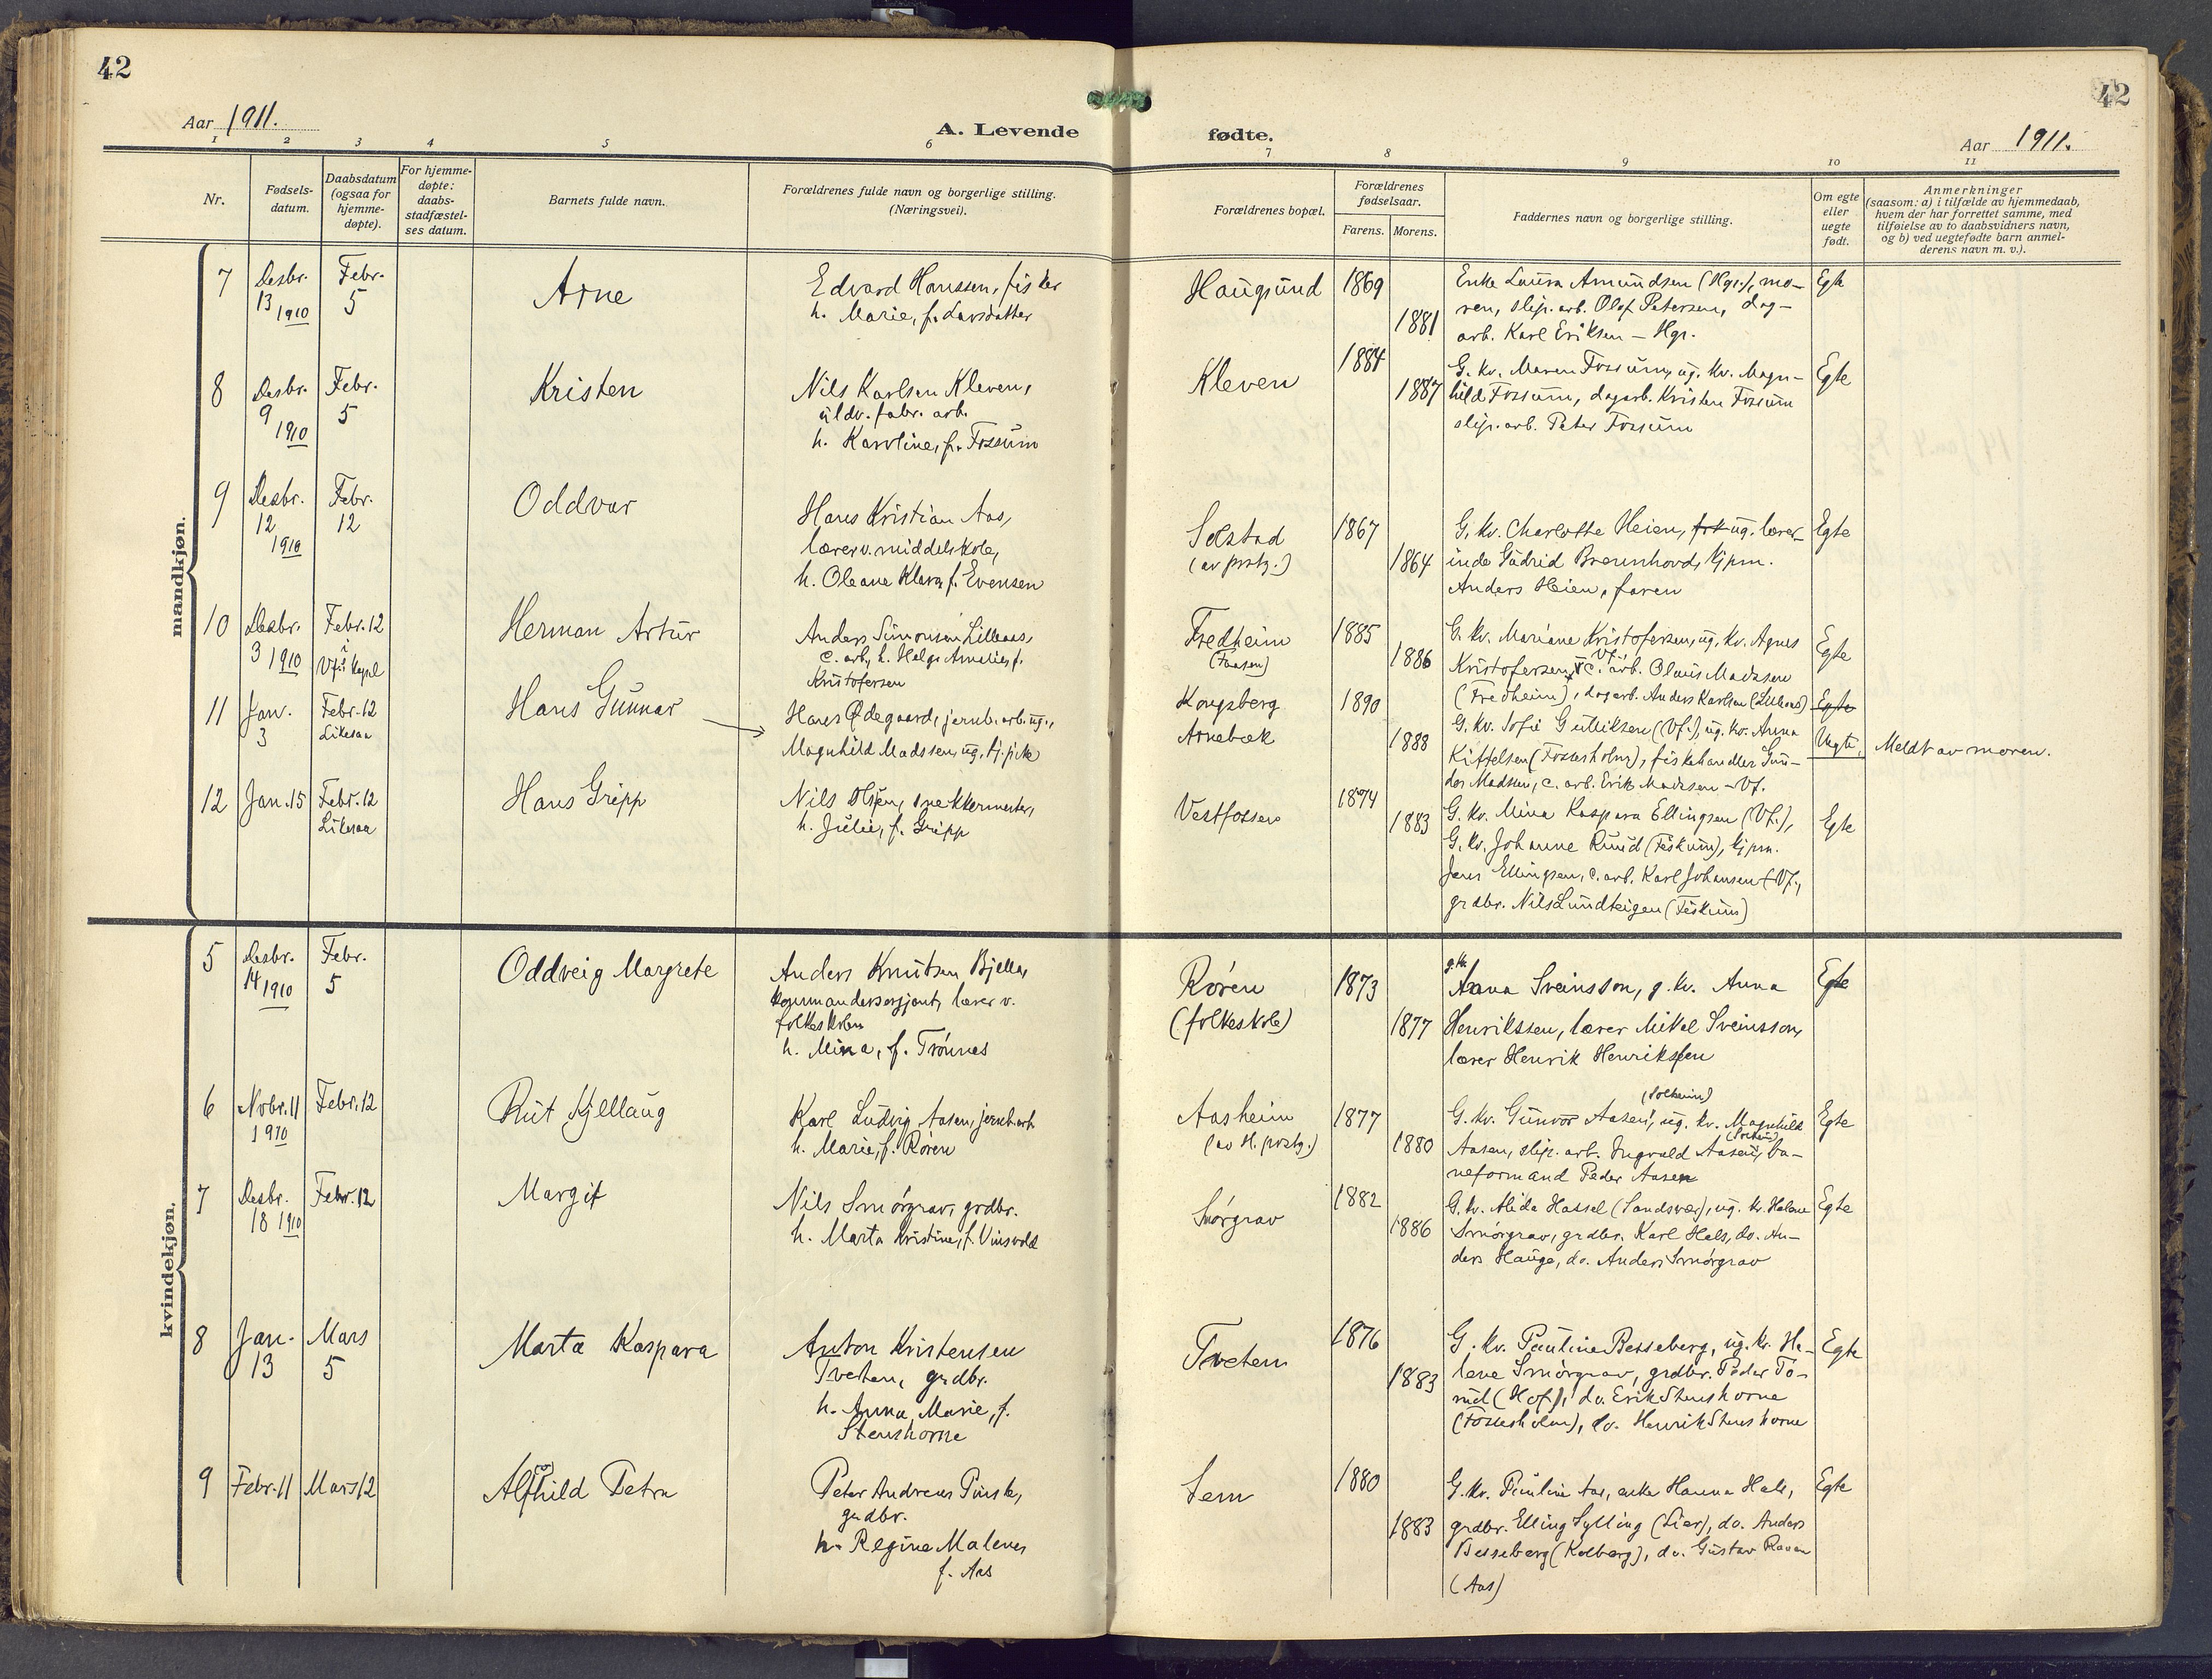 42
42
Aar 1911.
A. Levende fødte.
Aar 1911.
1 2 3 4 5 6 7 8 9 10 11
Nr.
Fødsels-
datum.
Daabsdatum
(ogsaa for
hjemme-
døpte).
For hjemme-
døpte:
daabs-
stadfæstel-
ses datum.
Barnets fulde navn.
Forældrenes fulde navn og borgerlige stilling.
(Næringsvei).
Forældrenes bopæl.
Forældrenes
fødselsaar.
Farens. Morens.
Faddernes navn og borgerlige stilling.
Om egte
eller
uegte
født.
Anmerkninger
(saasom: a) i tilfælde av hjemmedaab,
hvem der har forrettet samme, med
tilføielse av to daabsvidners navn,
og b) ved uegtefødte barn anmel-
derens navn m. v.).
mandkjøn.
7
Desbr.
13 1910
Febr.
5
Arne
Edvard Hanssen, fisker
h. Marie, f. Larsdatter
Haugsund
1869
1881
Enke Laura Amundsen (Hgs.), mo-
ren, slip. arb. Olof Petersen, dag-
arb. Karl Eriksen - Hgs.
Egte
8
Desbr.
9
1910
Febr.
5
Kristen
Nils Karlsen Kleven,
uldv. fabr. arb.
h. Karoline, f. Fossum
Kleven
1884
1887
G. kv. Maren Fossum, ug. kv. Magn-
hild Fossum, dagarb. Kristen Fossum
slip. arb. Peter Fossum
Egte
9
Desbr.
12
1910
Febr.
12
Oddvar
Hans Kristian Aas,
lærer v. middelskole,
h. Oleane Klara, f. Evensen
Solstad
(av prstg.)
1867
1864
G. kv. Charlotte Heien, ug. lærer-
inde Gudrid Brennhovd, kjpm.
Anders Heien, faren
Egte
10
Desbr.
3 1910
Febr. 12
i
Vfs kapel
Herman Artur
Anders Simonsen Lilleaas,
c. arb, h. Helga Amalie, f.
Kristofersen
Fredheim
(Faasen)
1885
1886
G. kv. Mariane Kristofersen, ug. kv. Agnes
Kristofersen, Vf. c. arb. Olaus Madssen
(Fredheim), dagarb. Anders Karlsen (Lilleaas)
Egte
11
Jan.
3
Febr. 12
Likesaa
Hans Gunnar
Hans Ødegaard, jernb. arb. ug.,
Magnhild Madssen, ug. tj. pike
Kongsberg
Arnebæk
1890
1888
G. kv. Sofie Gulliksen (Vf.), ug. kv. Anna
Kittelsen (Fossesholm), fiskehandler Gun-
der Madsen, c. arb. Erik Madssen - Vf.
Egte
Uegte.
Meldt av moren.
12
Jan. 15
Febr. 12
Likesaa
Hans Gripp
Nils Olsen, snekkermester,
h. Julie, f. Gripp
Vestfossen
1874
1883
G. kv. Mina Kaspara Ellingsen (Vf.),
G. kv. Johanne Ruud (Fiskum), kjpm.
Jens Ellingsen, c. arb. Karl Johansen - Vf.,
grdbr. Nils Lundteigen (Fiskum)
Egte
kvindekjøn.
5
Desbr.
14 1910
Febr.
5
Oddveig Margrete
Anders Knutsen Bjella,
kommandersersjant, lærer v.
folkeskolen
h. Mina, f. Trønnes
Røren
(folkeskole)
1873
1877
g. kv.
Anna Sveinsson, g. kv. Anna
Henrikssen, lærer Mikal Sveinsson,
lærer Henrik Henrikssen
Egte
6
Nvbr. 11
1910
Febr. 12
Rut Kjellaug
Karl Ludvig Aasen, jernb. arb.
h. Marie, f. Røren
Aasheim
(av H. prstg.)
1877
1880
(Solheim)
G. kv. Gunvor Aasen, ug. kv. Magnhild
Aasen, slip. arb. Ingvald Aasen, (Solheim) ba-
neformand Peder Aasen
Egte
7
Desbr.
18 1910
Febr. 12
Margit
Nils Smørgrav, grdbr.
h. Marta Kristine, f. Vinsvold
Smørgrav
1882
1886
G. kv. Alida Hassel (Sandsvær), ug. kv. Helene
Smørgrav, grdbr. Karl Hals, do. An-
ders Hauge, do. Anders Smørgrav
Egte
8
Jan.
13
Mars
5
Marta Kaspara
Anton Kristensen
Tveten, grdbr.
h. Anna Marie, f.
Stenshorne
Tveten
1876
1883
G. kv. Pauline Besseberg, ug. kv. He-
lene Smørgrav, grdbr. Peder To-
rud (Hof), do. Erik Stenshorne
(Fossesholm), do. Henrik Stenshorne
Egte
9
Febr. 11
Mars 12
Alfhild Petra
Peter Andreas Purste,
grdbr.
h. Regine Malene,
f. Aas
Sem
1880
1883
G. kv. Pauline Aas, enke Hanna Hals,
grdbr. Elling Sylling (Lier), do. Anders
Besseberg (Kolberg), do. Gustav Raaen
(Aas)
Egte